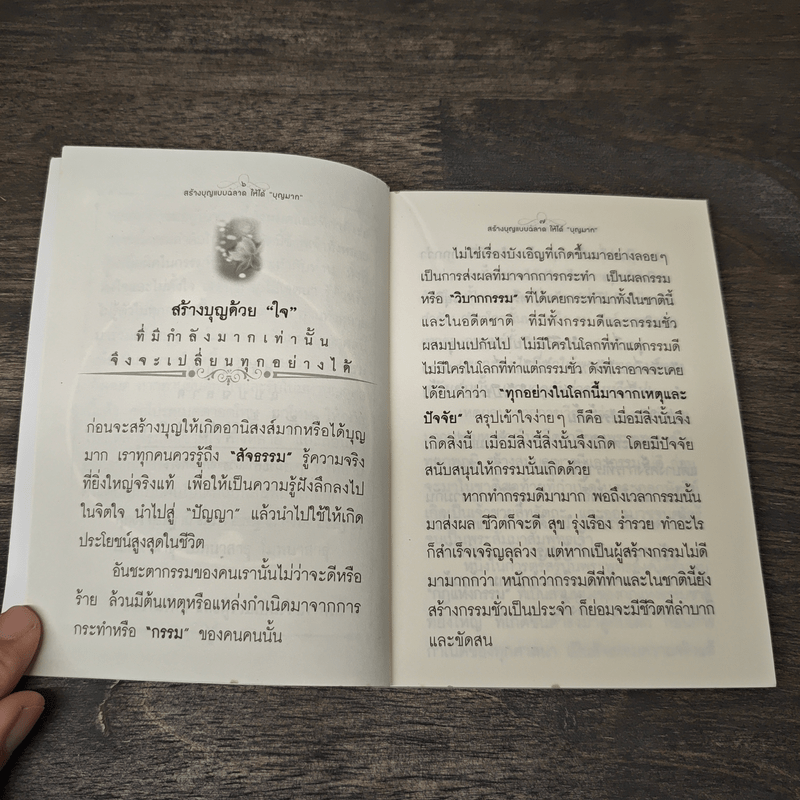 ๖
สร้างบุญแบบฉลาด ให้ได้ "บุญมาก"
สร้างบุญด้วย “ใจ”
ที่มีกำลังมากเท่านั้น
จึงจะเปลี่ยนทุกอย่างได้
ก่อนจะสร้างบุญให้เกิดอานิสงส์มากหรือได้บุญ
มาก เราทุกคนควรรู้ถึง “สัจธรรม” รู้ความจริง
ที่ยิ่งใหญ่จริงแท้ เพื่อให้เป็นความรู้ฝังลึกลงไป
ในจิตใจ นำไปสู่ “ปัญญา” แล้วนำไปใช้ให้เกิด
ประโยชน์สูงสุดในชีวิต
อันชะตากรรมของคนเรานั้นไม่ว่าจะดีหรือ
ร้าย ล้วนมีต้นเหตุหรือแหล่งกำเนิดมาจากการ
กระทำหรือ “กรรม” ของคนคนนั้น
๗
สร้างบุญแบบฉลาด ให้ได้ "บุญมาก"
ไม่ใช่เรื่องบังเอิญที่เกิดขึ้นมาอย่างลอยๆ
เป็นการส่งผลที่มาจากการกระทำ เป็นผลกรรม
หรือ “วิบากกรรม” ที่ได้เคยกระทำมาทั้งในชาตินี้
และในอดีตชาติ ที่มีทั้งกรรมดีและกรรมชั่ว
ผสมปนเปกันไป ไม่มีใครในโลกที่ทำแต่กรรมดี
ไม่มีใครในโลกที่ทำแต่กรรมชั่ว ดังที่เราอาจจะเคย
ได้ยินคำว่า “ทุกอย่างในโลกนี้มาจากเหตุและ
ปัจจัย” สรุปเข้าใจง่ายๆ ก็คือ เมื่อมีสิ่งนั้นจึง
เกิดสิ่งนี้ เมื่อมีสิ่งนี้สิ่งนั้นจึงเกิด โดยมีปัจจัย
สนับสนุนให้กรรมนั้นเกิดด้วย
หากทำกรรมดีมามาก พอถึงเวลากรรมนั้น
มาส่งผล ชีวิตก็จะดี สุข รุ่งเรือง ร่ำรวย ทำอะไร
ก็สำเร็จเจริญลุล่วง แต่หากเป็นผู้สร้างกรรมไม่ดี
มามากกว่า หนักกว่ากรรมดีที่ทำและในชาตินี้ยัง
สร้างกรรมชั่วเป็นประจำ ก็ย่อมจะมีชีวิตที่ลำบาก
และขัดสน